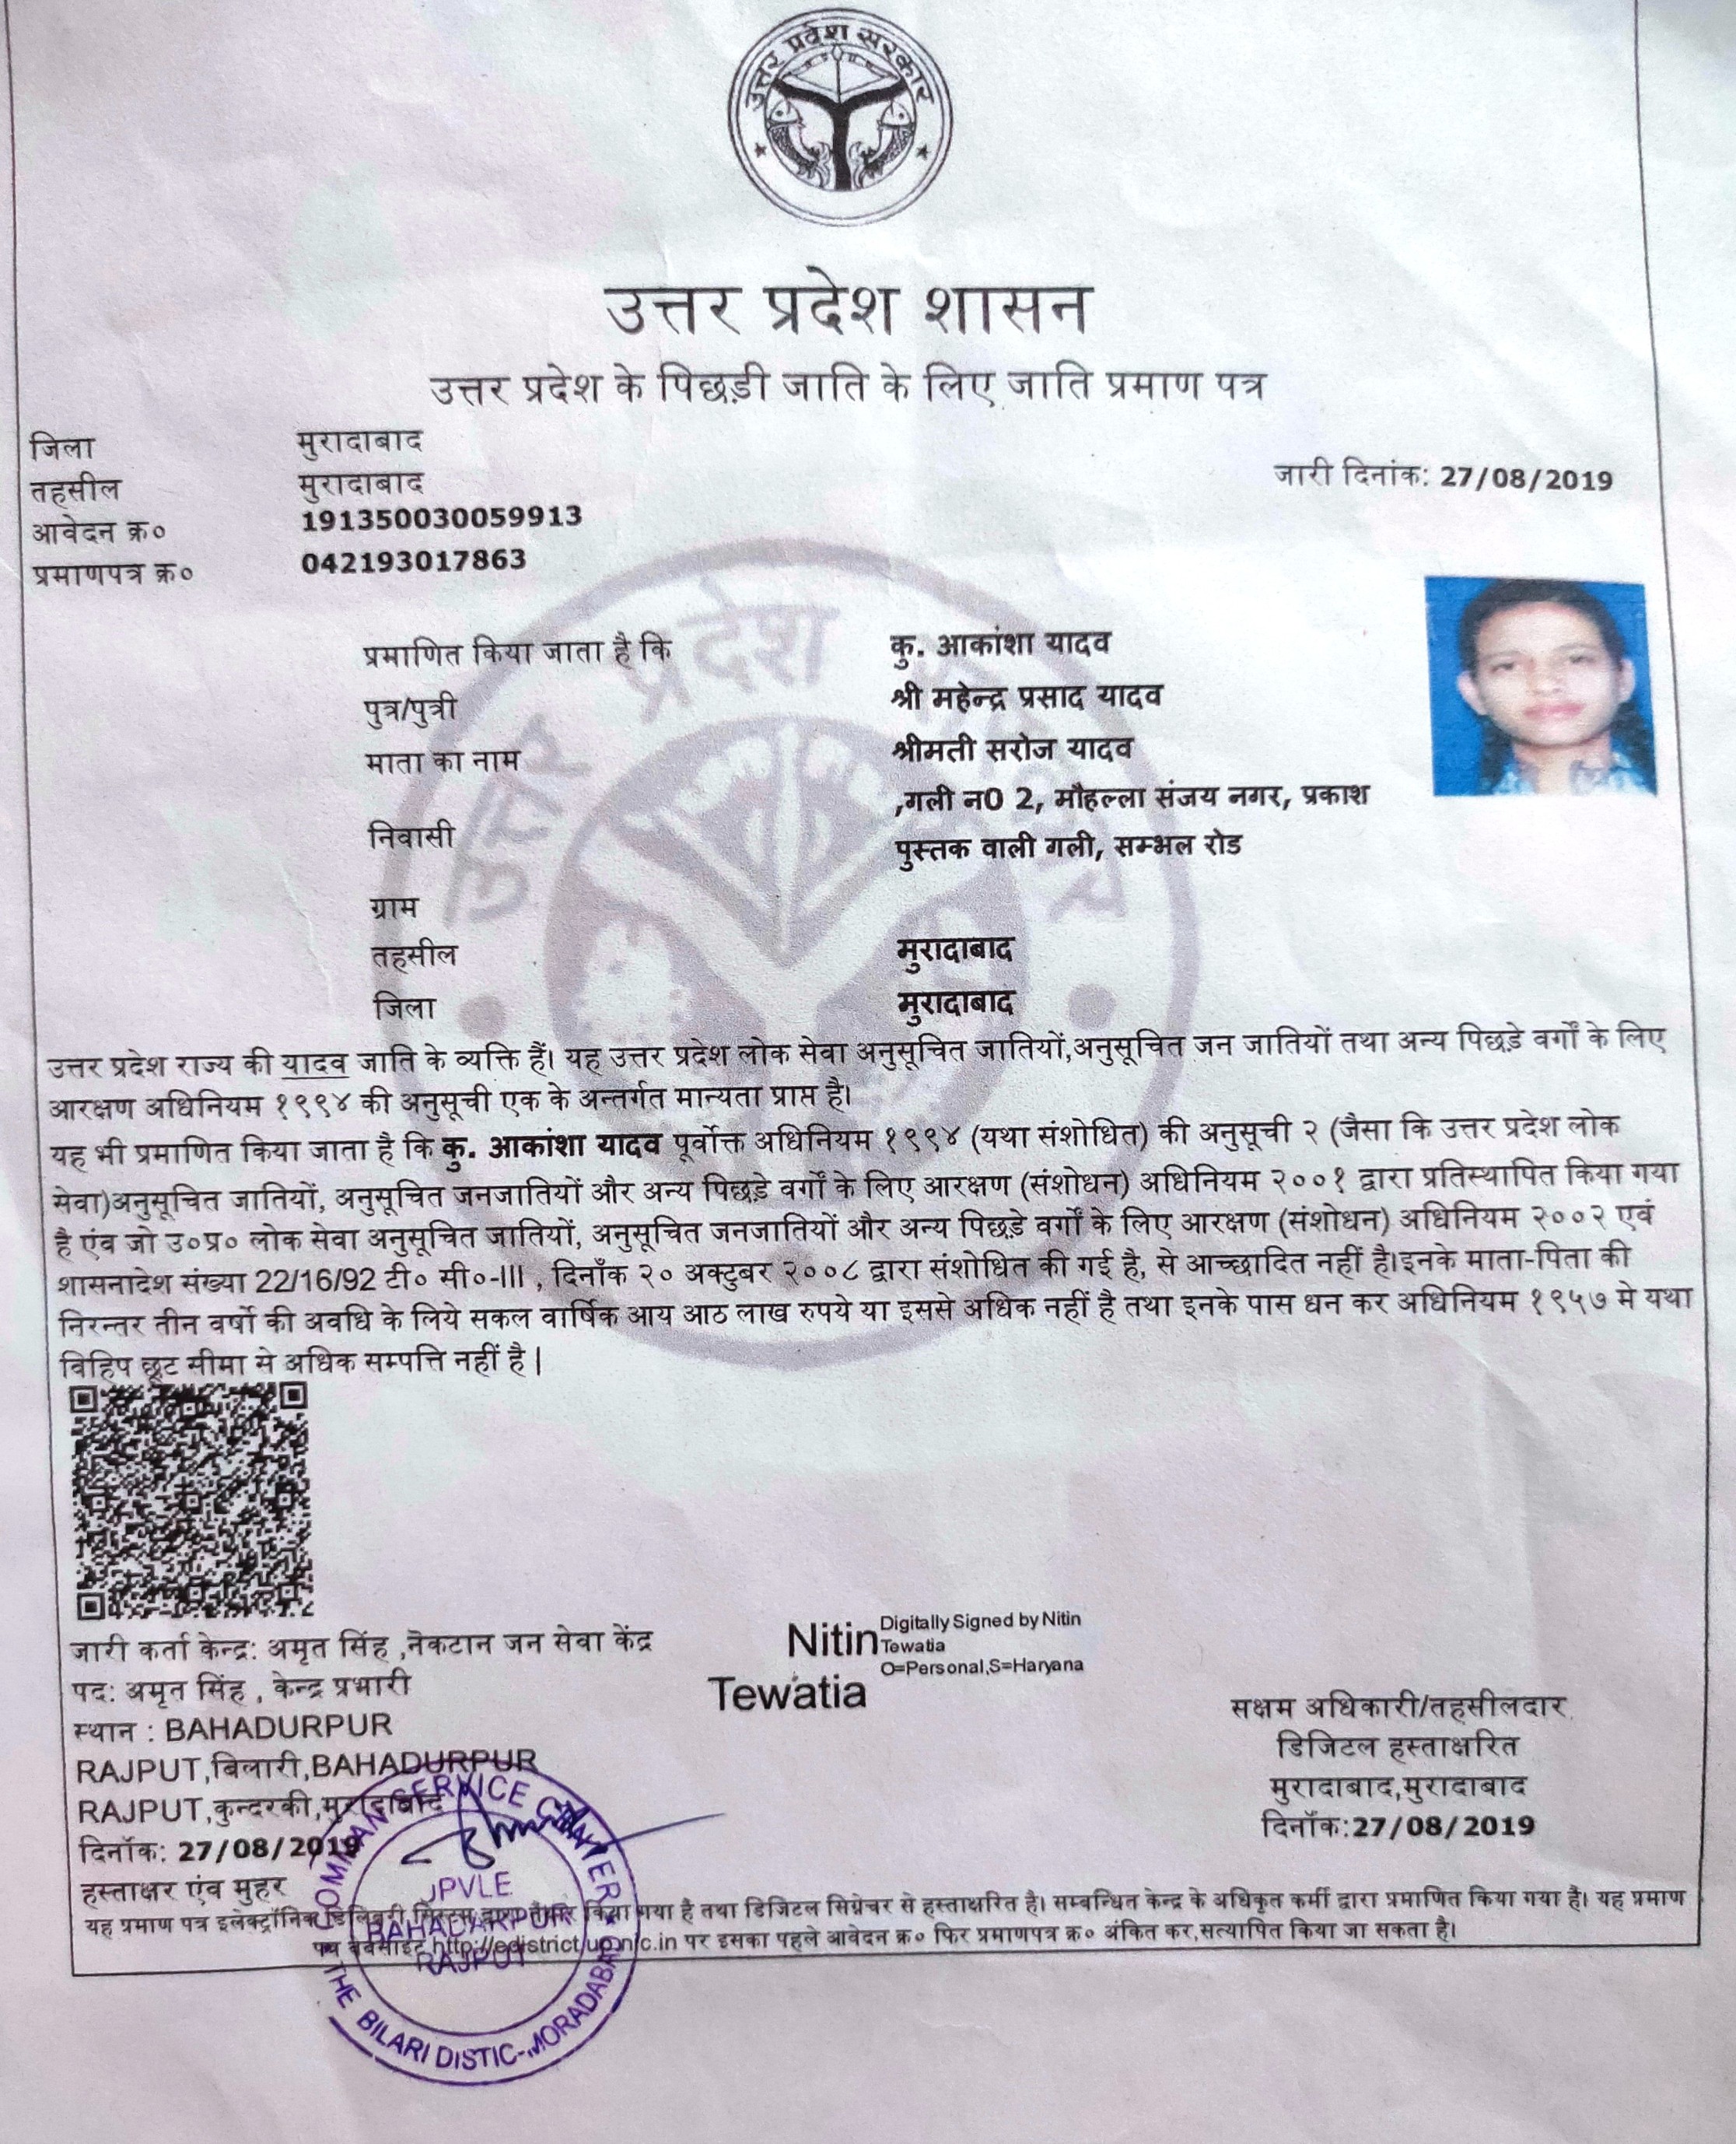 उत्तर प्रदेश सरकार
उत्तर प्रदेश शासन
उत्तर प्रदेश के पिछड़ी जाति के लिए जाति प्रमाण पत्र
जिला मुरादाबाद
तहसील मुरादाबाद
जारी दिनांक: 27/08/2019
आवेदन क्र० 191350030059913
प्रमाणपत्र क्र० 042193017863
प्रमाणित किया जाता है कि कु. आकांशा यादव
पुत्र/पुत्री श्री महेन्द्र प्रसाद यादव
माता का नाम श्रीमती सरोज यादव
निवासी ,गली न0 2, मौहल्ला संजय नगर, प्रकाश
पुस्तक वाली गली, सम्भल रोड
ग्राम
तहसील मुरादाबाद
जिला मुरादाबाद
उत्तर प्रदेश राज्य की यादव जाति के व्यक्ति हैं। यह उत्तर प्रदेश लोक सेवा अनुसूचित जातियों,अनुसूचित जन जातियों तथा अन्य पिछड़े वर्गों के लिए
आरक्षण अधिनियम १९९४ की अनुसूची एक के अन्तर्गत मान्यता प्राप्त है।
यह भी प्रमाणित किया जाता है कि कु. आकांशा यादव पूर्वोक्त अधिनियम १९९४ (यथा संशोधित) की अनुसूची २ (जैसा कि उत्तर प्रदेश लोक
सेवा)अनुसूचित जातियों, अनुसूचित जनजातियों और अन्य पिछड़े वर्गों के लिए आरक्षण (संशोधन) अधिनियम २००१ द्वारा प्रतिस्थापित किया गया
है एंव जो उ०प्र० लोक सेवा अनुसूचित जातियों, अनुसूचित जनजातियों और अन्य पिछड़े वर्गों के लिए आरक्षण (संशोधन) अधिनियम २००२ एवं
शासनादेश संख्या 22/16/92 टी० सी०-III , दिनाँक २० अक्टुबर २००८ द्वारा संशोधित की गई है, से आच्छादित नहीं है।इनके माता-पिता की
निरन्तर तीन वर्षो की अवधि के लिये सकल वार्षिक आय आठ लाख रुपये या इससे अधिक नहीं है तथा इनके पास धन कर अधिनियम १९५७ मे यथा
विहिप छूट सीमा से अधिक सम्पत्ति नहीं है |
जारी कर्ता केन्द्र: अमृत सिंह ,नेकटान जन सेवा केंद्र
पद: अमृत सिंह , केन्द्र प्रभारी
स्थान : BAHADURPUR
RAJPUT,बिलारी,BAHADURPUR
RAJPUT,कुन्दरकी,मुरादाबाद
दिनॉक: 27/08/2019
हस्ताक्षर एंव मुहर
Nitin
Tewatia
Digitally Signed by Nitin
Tewatia
O=Personal,S=Haryana
सक्षम अधिकारी/तहसीलदार
डिजिटल हस्ताक्षरित
मुरादाबाद,मुरादाबाद
दिनॉक:27/08/2019
यह प्रमाण पत्र इलेक्ट्रॉनिक डिलिवरी सिस्टम द्वारा तैयार किया गया है तथा डिजिटल सिग्नेचर से हस्ताक्षरित है। सम्बन्धित केन्द्र के अधिकृत कर्मी द्वारा प्रमाणित किया गया है। यह प्रमाण
पत्र वेबसाइट http://edistrict.up.nic.in पर इसका पहले आवेदन क्र० फिर प्रमाणपत्र क्र० अंकित कर,सत्यापित किया जा सकता है।
SERVICE
JPVLE
BAHADARPUR
RAJPUT
THE BILARI DISTIC-MORADABAD